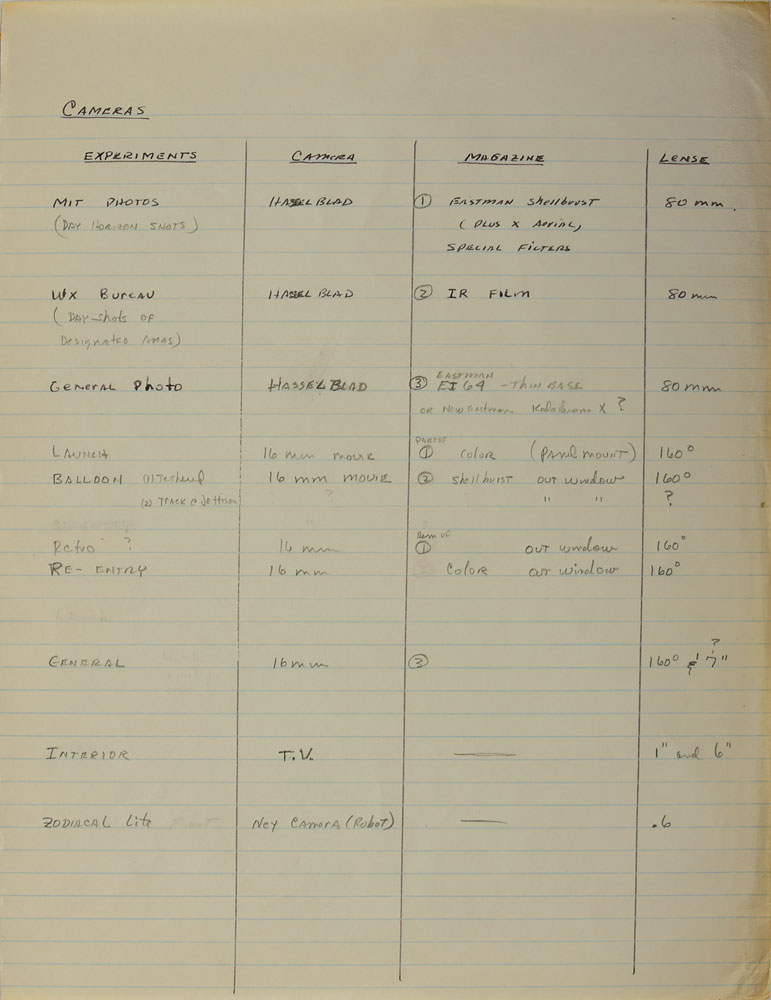 CAMERAS
EXPERIMENTS CAMERA MAGAZINE LENSE
MIT PHOTOS HASSELBLAD ① EASTMAN Shellburst 80 mm.
(DAY HORIZON SHOTS) (PLUS X Aerial)
SPECIAL FILTERS
WX BUREAU HASSELBLAD ② IR FILM 80 mm
(DAY-Shots OF
Designated Areas)
EASTMAN
GENERAL Photo HASSELBLAD ③ EI 64 - THIN BASE 80 mm
OR New Eastman X ?
PART OF
LAUNCH 16 mm movie ① COLOR (PANEL MOUNT) 160°
BALLOON (1) Tethered 16 mm MOVIE ② Shellburst OUT WINDOW 160°
(2) TRACK @ Jettison ? " " ?
Rem OF
Retro ? 16 mm ① OUT window 160°
RE-ENTRY 16 mm COLOR OUT WINDOW 160°
?
GENERAL 16 mm ③ 160° & 7"
INTERIOR T.V. — 1" and 6"
ZODIACAL Lite Robot Ney CAMERA (Robot) — .6